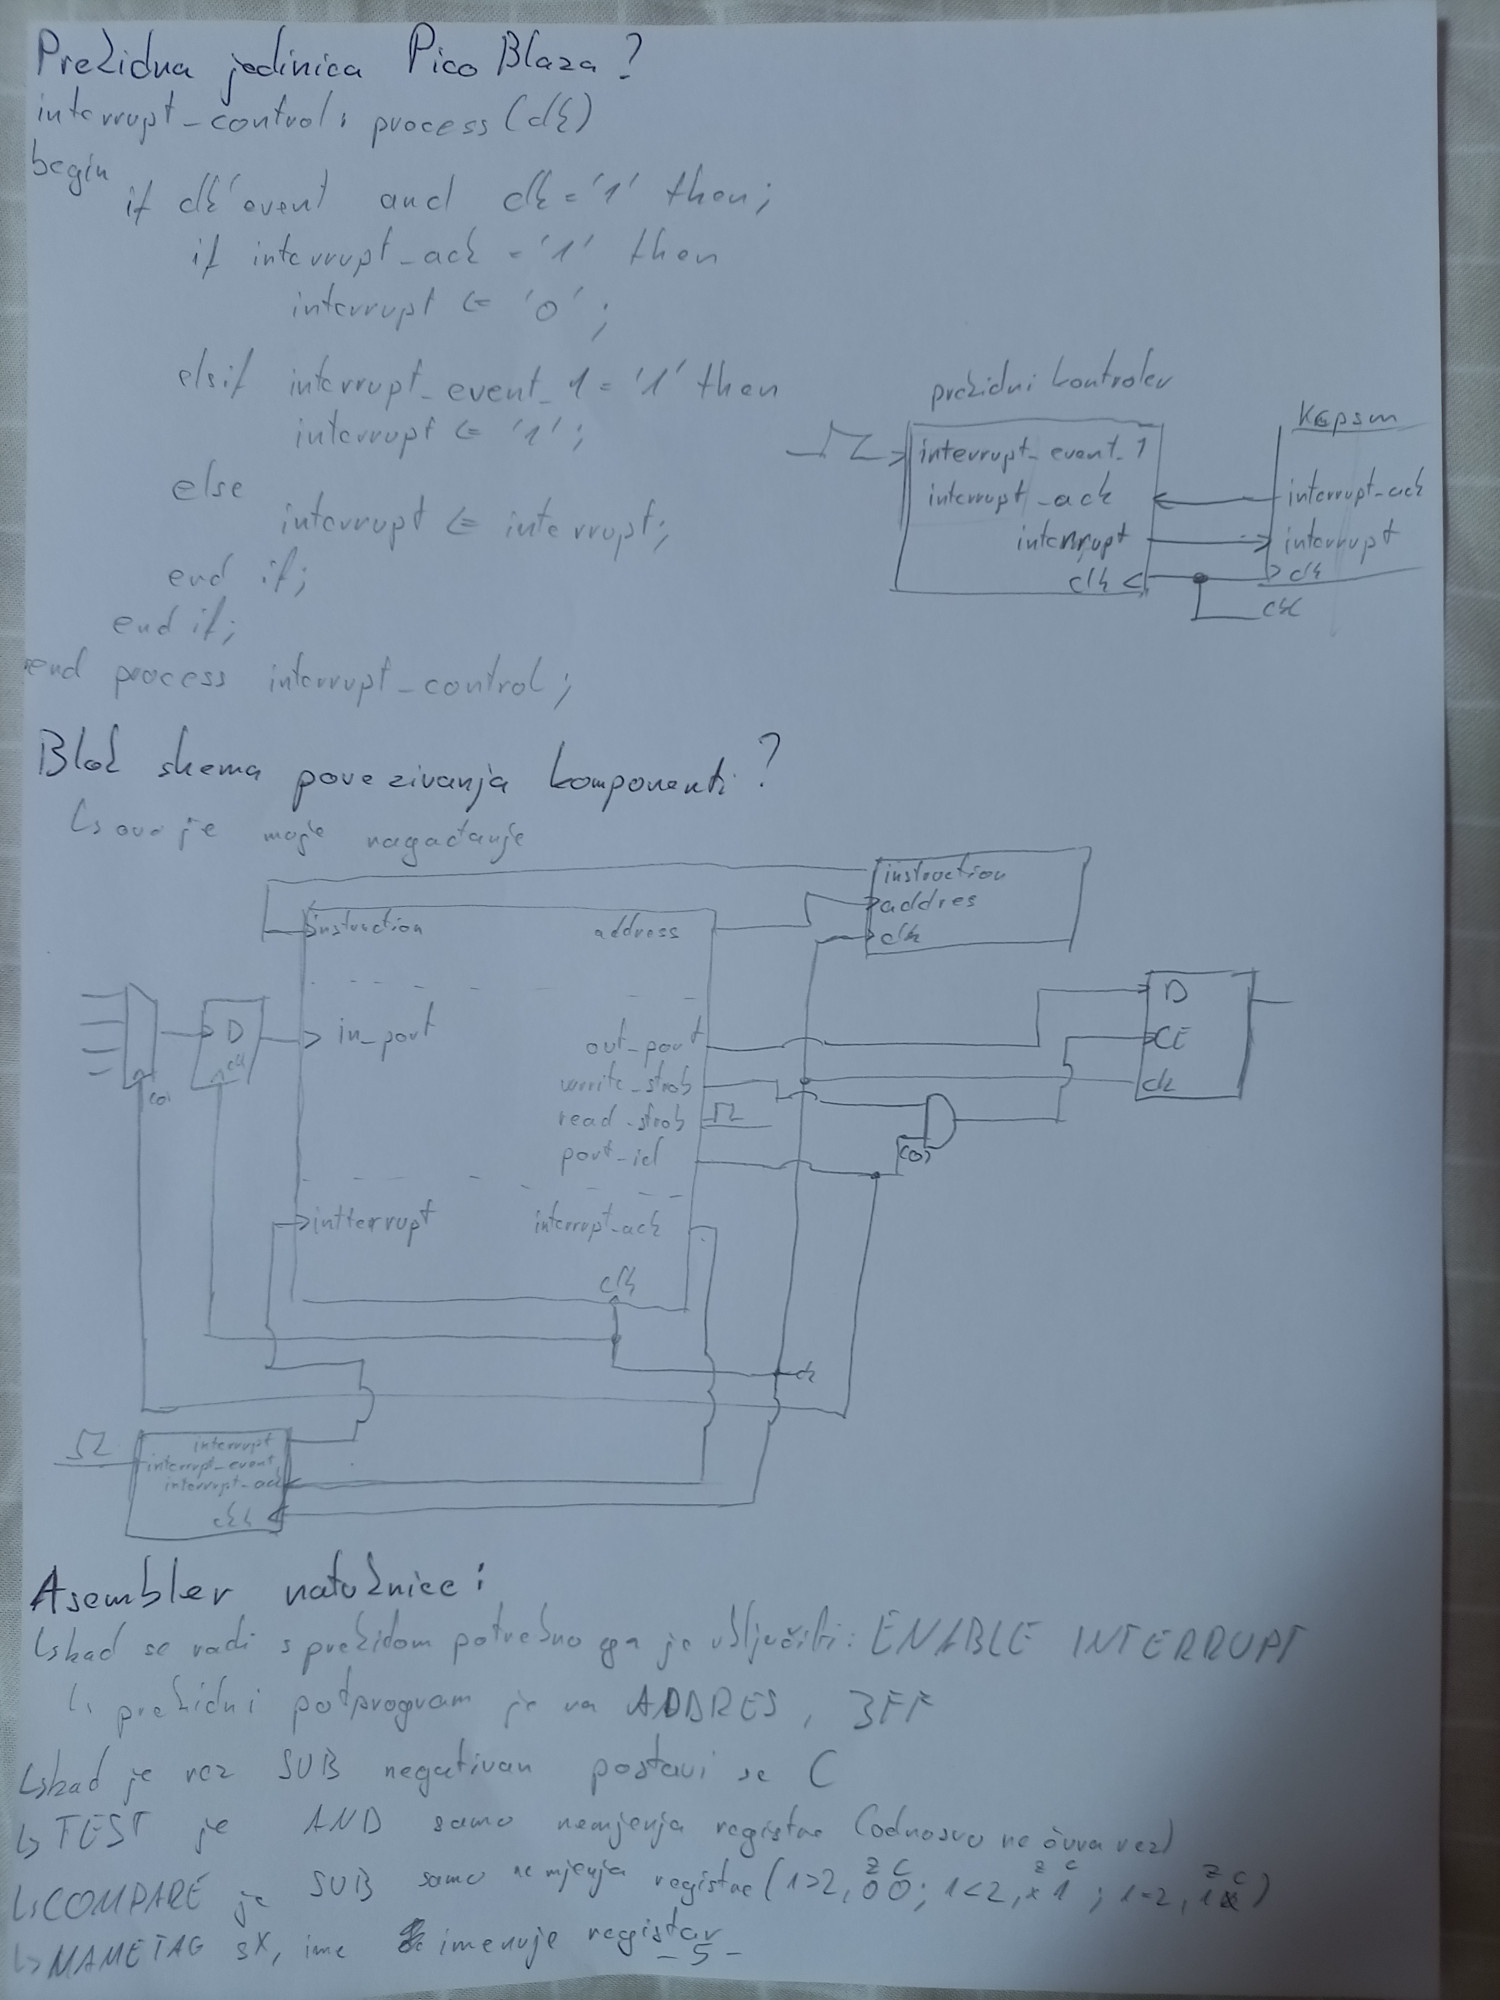 Prekidna jedinica Pico Blaza?
interrupt_control: process(clk)
begin
if clk'event and clk='1' then;
if interrupt_ack = '1' then
interrupt <= '0';
elsif interrupt_event_1 = '1' then
interrupt <= '1';
else
interrupt <= interrupt;
end if;
end if;
end process interrupt_control;
prekidni kontroler
interrupt_event_1
interrupt_ack
interrupt
clk
Kcpsm
interrupt_ack
interrupt
clk
clk
Blok shema povezivanja komponenti?
↳ ovo je moje nagađanje
instruction
addres
clk
instruction address
D
clk
in_port
out_port
write_strob
read_strob
port_id
D
CE
clk
intterrupt interrupt_ack
clk
clk
interrupt
interrupt_event
interrupt_ack
clk
Asembler natuknice:
↳ kad se radi s prekidom potrebno ga je uključiti: ENABLE INTERRUPT
↳ prekidni potprogram je na ADDRES, 3FF
↳ kad je rez SUB negativan postavi se C
↳ TEST je AND samo nemjenja registre (odnosno ne čuva rez)
↳ COMPARE je SUB samo ne mjenja registre (1>2, 00; 1<2, x1; 1=2, 1x)
z c z c z c
↳ NAMETAG sX, ime imenuje registar
- 5 -